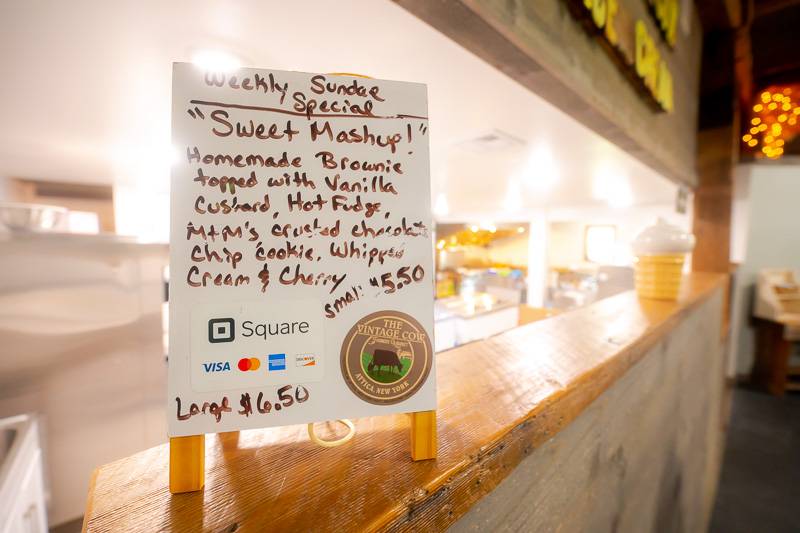 Weekly Sundae
Special
"Sweet Mashup!"
Homemade Brownie
topped with Vanilla
Custard, Hot Fudge,
M+M's crusted chocolate
Chip cookie, Whipped
Cream & Cherry
small: $5.50
Square
VISA DISCOVER
THE
VINTAGE COW
ATTICA, NEW YORK
Large $6.50